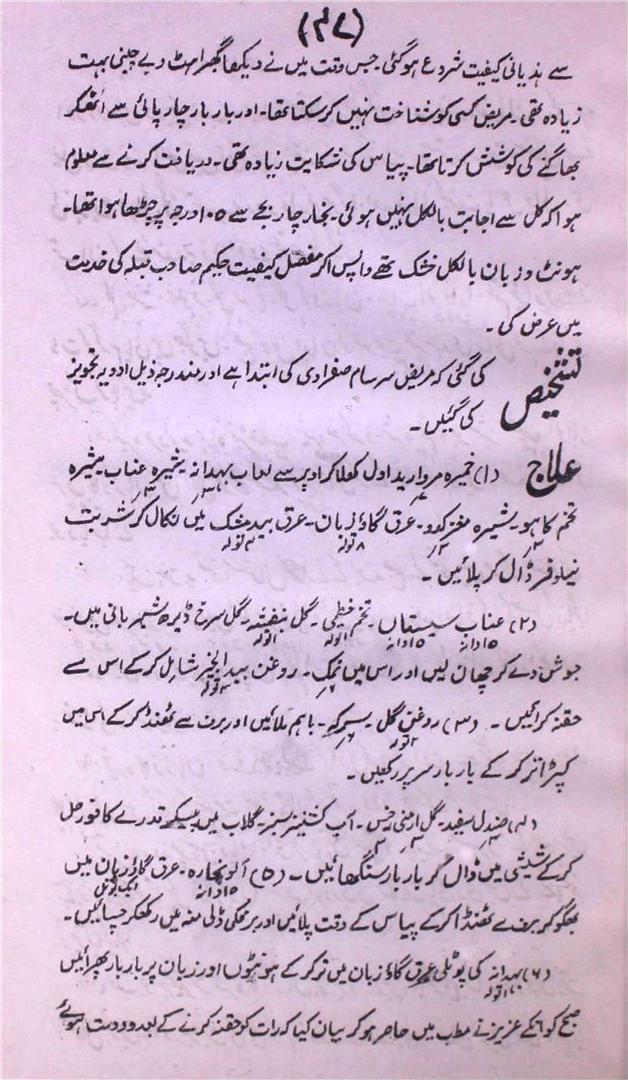 (۴۷)
سے ہذیانی کیفیت شروع ہوگئی جس وقت میں نے دیکھا گھبراہٹ و بے چینی بہت
زیادہ تھی۔ مریض کسی کو شناخت نہیں کرسکتا تھا۔ اور بار بار چارپائی سے اٹھکر
بھاگنے کی کوشش کرتا تھا۔ پیاس کی شکایت زیادہ تھی۔ دریافت کرنے سے معلوم
ہوا کہ کل سے اجابت بالکل نہیں ہوئی۔ بخار چار بجے سے ۱۰۵ درجہ پر چڑھا ہوا تھا۔
ہونٹ و زبان بالکل خشک تھے واپس آکر مفصل کیفیت حکیم صاحب قبلہ کی خدمت
میں عرض کی۔
تشخیص کی گئی کہ مریض سرسام صفراوی کی ابتدا ہے اور مندرجہ ذیل ادویہ تجویز
کی گئیں۔
علاج (۱) خمیرہ مروارید اول کھلا کر اوپر سے لعاب بہدانہ شیرہ عناب شیرہ
تخم کاہو۔ شیرہ مغز کدو۔ عرق گاؤزبان۔ عرق بیدمشک میں نکال کر شربت
۸ تولہ ۴ تولہ
نیلوفر ڈال کر پلائیں۔
(۲) عناب سپستاں۔ تخم خطمی۔ گل بنفشہ۔ گل سرخ ڈیرھ سیر پانی میں۔
۱۵ دانہ ۱۵ دانہ ۱ تولہ ۱ تولہ
جوش دے کر چھان لیں اور اس میں نمک۔ روغن بیدانجیر شامل کرکے اس سے
حقنہ کرائیں۔ (۳) روغن گل۔ سرکہ۔ باہم ملائیں اور برف سے ٹھنڈا کرکے اس میں
۲ تولہ
کپڑا تر کرکے بار بار سر پر رکھیں۔
(۴) صندل سفید۔ گل ارمنی خس۔ آب کشنیز سبز۔ گلاب میں پیسکر قدرے کافور حل
کرکے شیشی میں ڈال کر بار بار سنگھائیں۔ (۵) آلو بخارہ۔ عرق گاؤزبان میں
۱۵ دانہ ایک بوتل
بھگو کر برف سے ٹھنڈا کرکے پیاس کے وقت پلائیں اور برف کی ڈلی منہ میں رکھکر چسائیں۔
(۶) بہدانہ کی پوٹلی عرق گاؤزبان میں تر کرکے ہونٹوں اور زبان پر بار بار پھرائیں
۱ تولہ
صبح کو انکے عزیز نے مطب میں حاضر ہوکر بیان کیا کہ رات کو حقنہ کرنے کے بعد دو دست ہوئے